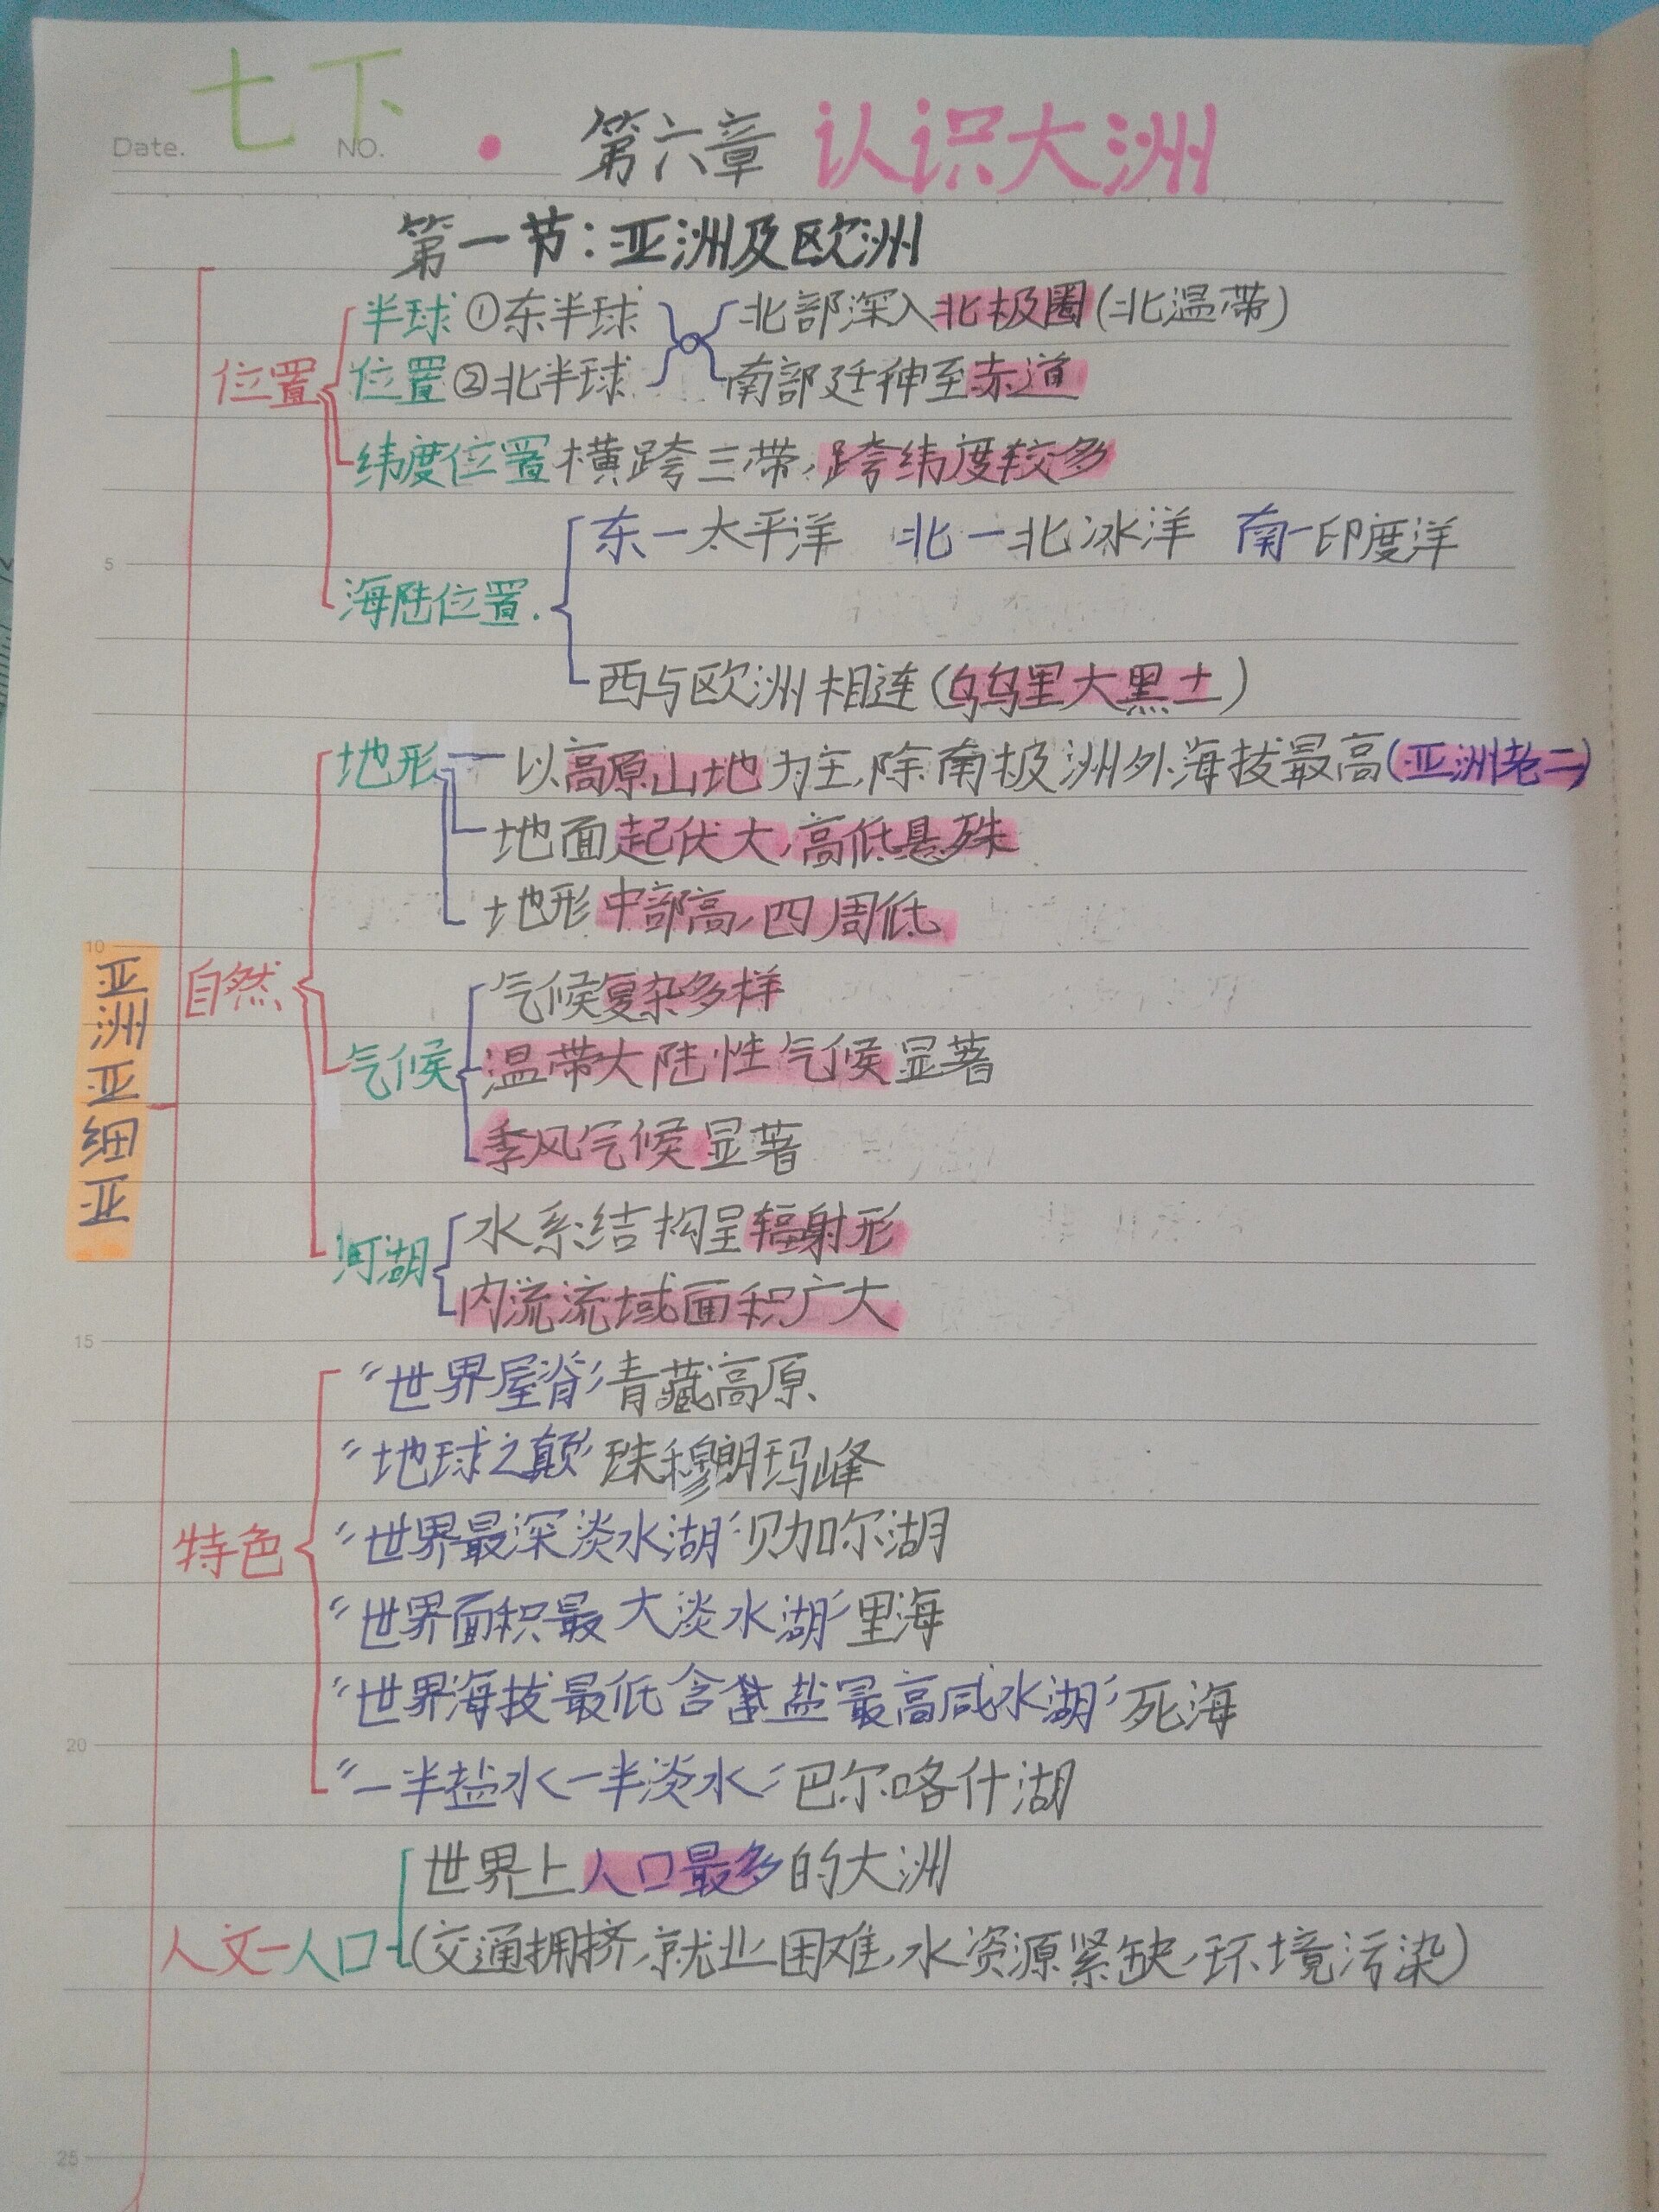 七下
Date.
NO.
第六章 认识大洲
第一节：亚洲及欧洲
半球 ①东半球 北部深入北极圈(北温带)
位置
位置 ②北半球 南部廷伸至赤道
纬度位置 横跨三带，跨纬度较多
东一太平洋 北一北冰洋 南一印度洋
5
海陆位置.
西与欧洲相连(乌乌里大黑土)
地形 一以高原山地为主，除南极洲外海拔最高(亚洲老二)
地面起伏大，高低悬殊
地形中部高，四周低
10
自然
气候复杂多样
气候 温带大陆性气候显著
季风气候显著
亚洲亚细亚
水系结构呈辐射形
河湖
内流流域面积广大
15
"世界屋脊"青藏高原
"地球之巅"珠穆朗玛峰
特色
"世界最深淡水湖"贝加尔湖
"世界面积最大淡水湖"里海
"世界海拔最低含盐最高咸水湖"死海
20
"一半盐水一半淡水"巴尔喀什湖
世界上人口最多的大洲
人文一人口 (交通拥挤，就业困难，水资源紧缺，环境污染)
25